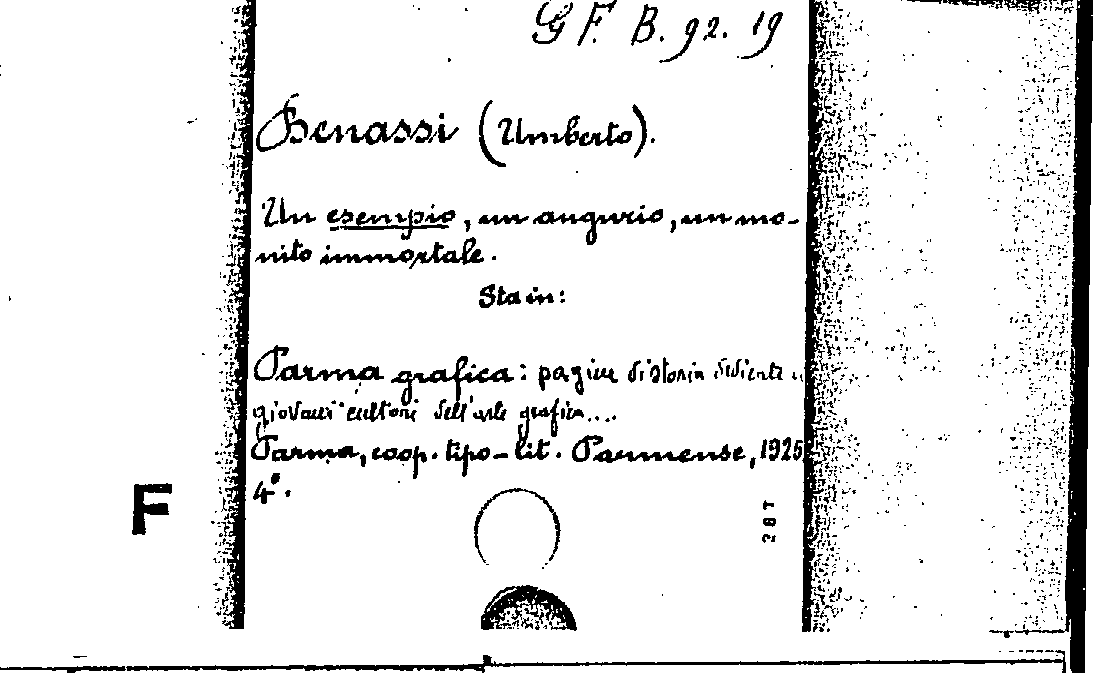 G F. B. 92. 19
Benassi (Umberto).
Un esempio, un augurio, un mo-
nito immortale.
Sta in:
Parma grafica: pagine di storia dedicate
giovani cultori dell'arte grafica...
Parma, coop. tipo-lit. Parmense, 1925
4°.
F
287